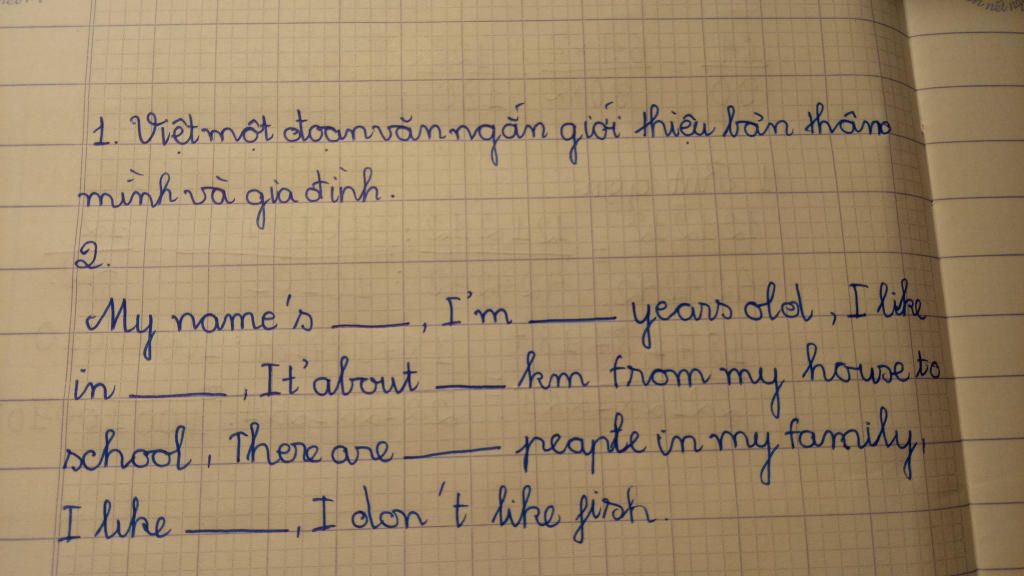 1. Việt một đoạn văn ngắn giới thiệu bản thân
mình và gia đình.
2.
My name's ___, I'm ___ years old, I like
in ___, It'about ___ km from my house to
school, There are ___ peapte in my family,
I like ___, I don't like fish.